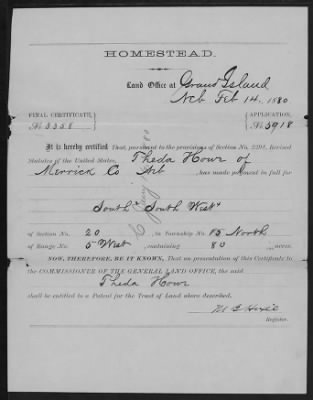 HOMESTEAD.
Land Office at Grand Island
Neb Feb 14, 1880
FINAL CERTIFICATE,
No.
APPLICATION,
No. 5918
It is hereby certified That, pursuant to the provisions of Section No. 2291, Revised
Statutes of the United States, Theda Hour of
Merrick Co has made payment in full for
South South West
of Section No. 20 in Township No. 15 North
of Range No. 5 West, containing 80 acres.
NOW, THEREFORE, BE IT KNOWN, That on presentation of this Certificate to
the COMMISSIONER OF THE GENERAL LAND OFFICE, the said
Theda Hour
shall be entitled to a Patent for the Tract of Land above described.
Register.